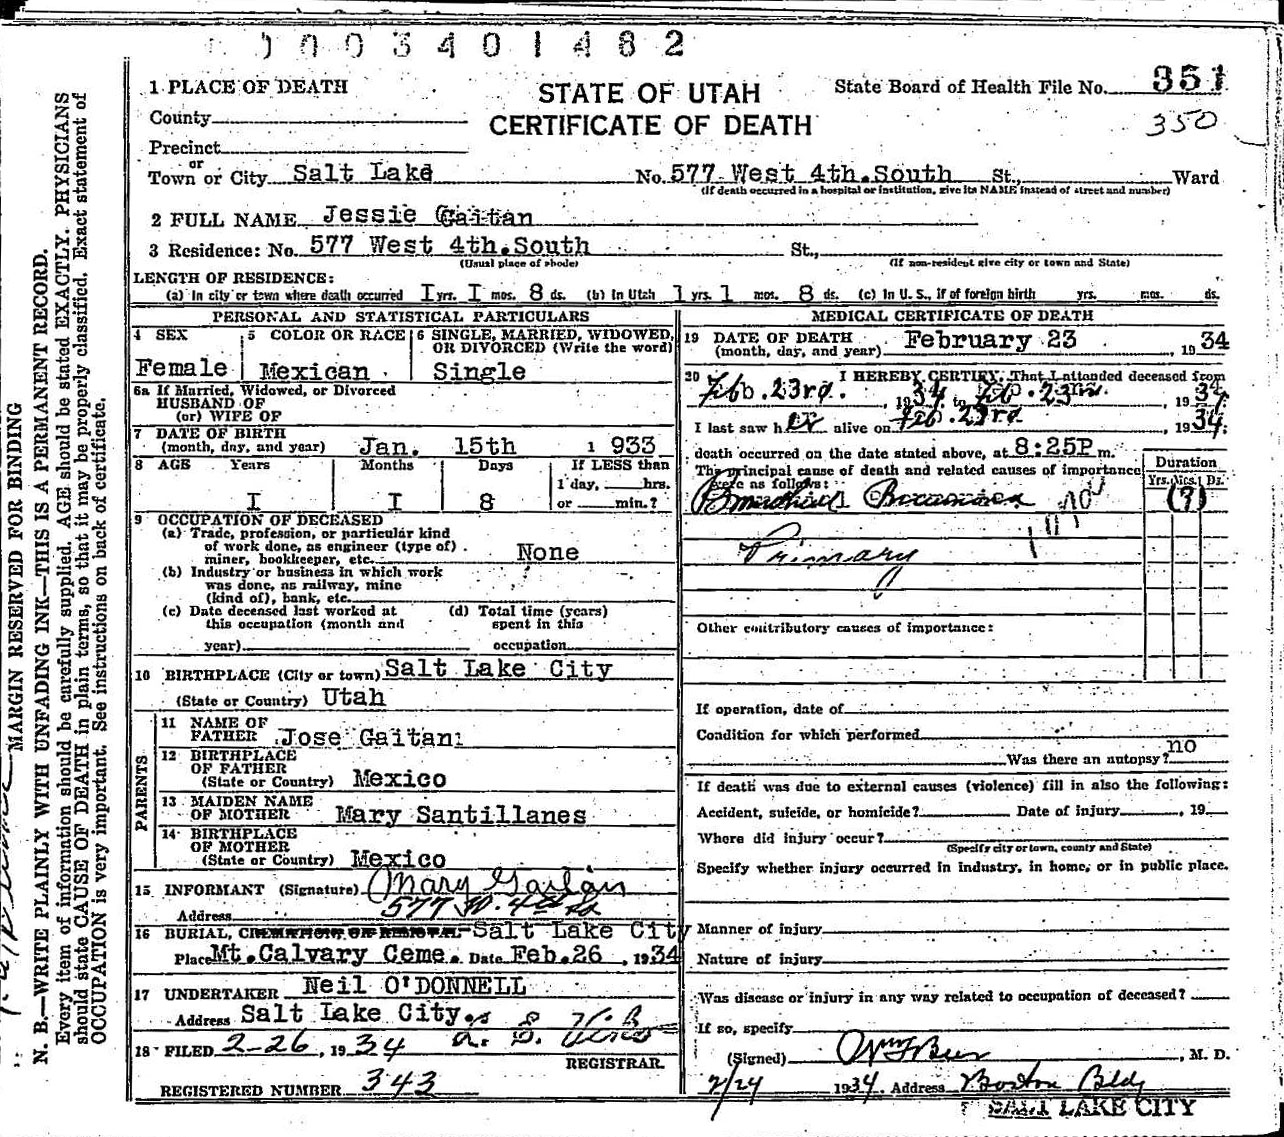 0003401482
1 PLACE OF DEATH
STATE OF UTAH
CERTIFICATE OF DEATH
State Board of Health File No. 351
350
County
Precinct
or
Town or City Salt Lake No. 577 West 4th.South St., Ward
(If death occurred in a hospital or institution, give its NAME instead of street and number)
2 FULL NAME Jessie Gaitan
3 Residence: No. 577 West 4th.South St.,
(Usual place of abode) (If non-resident give city or town and State)
LENGTH OF RESIDENCE:
(a) In city or town where death occurred I yrs. I mos. 8 ds. (b) In Utah 1 yrs. 1 mos. 8 ds. (c) In U. S., if of foreign birth yrs. mos. ds.
PERSONAL AND STATISTICAL PARTICULARS
4 SEX
Female
5 COLOR OR RACE
Mexican
6 SINGLE, MARRIED, WIDOWED,
OR DIVORCED (Write the word)
Single
6a If Married, Widowed, or Divorced
HUSBAND OF
(or) WIFE OF
7 DATE OF BIRTH
(month, day, and year) Jan. 15th 1933
8 AGE Years Months Days If LESS than
1 day, hrs.
I I 8 or min.?
9 OCCUPATION OF DECEASED
(a) Trade, profession, or particular kind
of work done, as engineer (type of)
miner, bookkeeper, etc. None
(b) Industry or business in which work
was done, as railway, mine
(kind of), bank, etc.
(c) Date deceased last worked at
this occupation (month and
year)
(d) Total time (years)
spent in this
occupation
10 BIRTHPLACE (City or town) Salt Lake City
(State or Country) Utah
PARENTS
11 NAME OF
FATHER Jose Gaitan
12 BIRTHPLACE
OF FATHER
(State or Country) Mexico
13 MAIDEN NAME
OF MOTHER Mary Santillanes
14 BIRTHPLACE
OF MOTHER
(State or Country) Mexico
15 INFORMANT (Signature) Mary Gaitan
Address 577 W. 4th So
16 BURIAL, CREMATION OR REMOVAL Salt Lake City
Place Mt. Calvary Ceme. Date Feb.26, 1934
17 UNDERTAKER Neil O'DONNELL
Address Salt Lake City.
18 FILED 2-26, 1934
REGISTRAR
REGISTERED NUMBER 343
MEDICAL CERTIFICATE OF DEATH
19 DATE OF DEATH
(month, day, and year) February 23, 1934
20 I HEREBY CERTIFY, That I attended deceased from
Feb. 23rd., 1934, to Feb. 23rd, 1934
I last saw her alive on Feb. 23rd, 1934;
death occurred on the date stated above, at 8:25P m.
The principal cause of death and related causes of importance
were as follows:
Duration
Yrs. Mos. Ds.
(?)
Primary
Other contributory causes of importance:
If operation, date of
Condition for which performed
Was there an autopsy? no
If death was due to external causes (violence) fill in also the following:
Accident, suicide, or homicide? Date of injury, 19
Where did injury occur?
(Specify city or town, county and State)
Specify whether injury occurred in industry, in home, or in public place.
Manner of injury
Nature of injury
Was disease or injury in any way related to occupation of deceased?
If so, specify
(Signed), M. D.
2/24 1934. Address Boston Bldg
SALT LAKE CITY
MARGIN RESERVED FOR BINDING
N. B.—WRITE PLAINLY WITH UNFADING INK—THIS IS A PERMANENT RECORD.
Every item of information should be carefully supplied. AGE should be stated EXACTLY. PHYSICIANS
should state CAUSE OF DEATH in plain terms, so that it may be properly classified. Exact statement of
OCCUPATION is very important. See instructions on back of certificate.